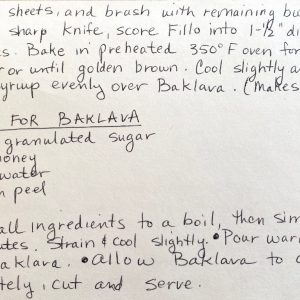 sheets, and brush with remaining bu
sharp knife, score Fillo into 1-½" di
s. Bake in preheated 350°F oven for
r or until golden brown. Cool slightly a
yrup evenly over Baklava. (Makes
FOR BAKLAVA
granulated sugar
oney
water
n peel
all ingredients to a boil, then sim
utes. Strain & cool slightly. • Pour war
aklava. • Allow Baklava to c
tely, cut and serve.